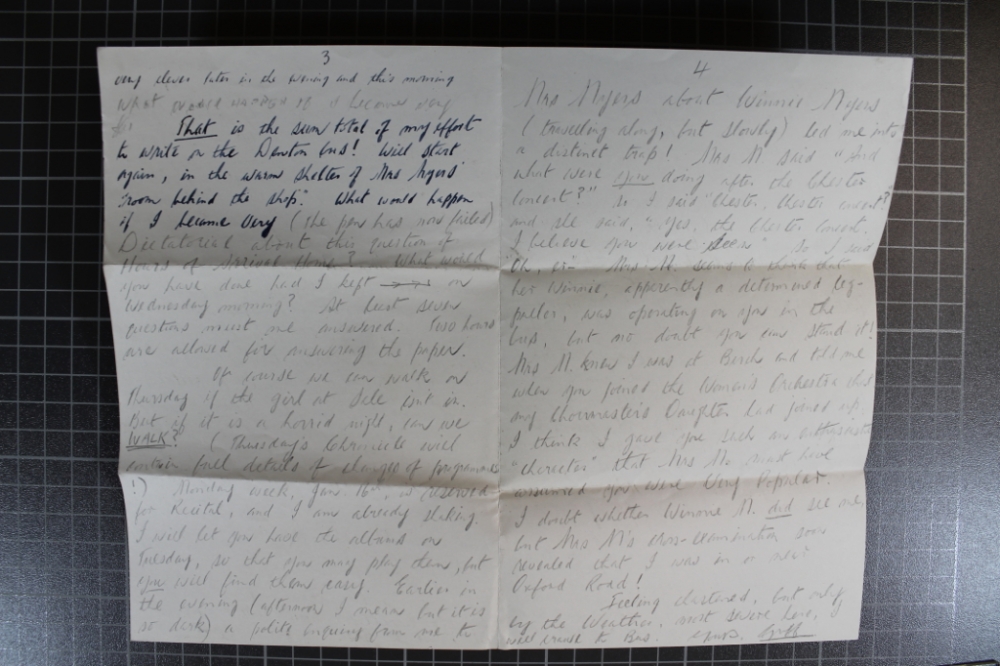 3
very clever later in the evening and this morning
what would happen if I became very
That is the sum total of my effort
to write on the Denton bus! Will start
again, in the warm shelter of Mrs Myers'
"room behind the shop". What would happen
if I became very (the pen has now failed)
Dictatorial about this question of
Hours of Arrival Home? What would
you have done had I kept on
Wednesday morning? At least seven
questions must be answered. Two hours
are allowed for answering the paper.
Of course we can walk on
Thursday if the girl at Sale isn't in.
But if it is a horrid night, can we
WALK? (Thursday's Chronicle will
contain full details of changes of programme
!) Monday week, Jan. 16th, is reserved
for Recital, and I am already shaking.
I will let you have the albums on
Tuesday, so that you may play them, but
you will find them easy. Earlier in
the evening (afternoon I mean but it is
so dark) a polite enquiry from me to
4
Mrs Myers about Winnie Myers
(travelling along, but slowly) led me into
a distinct trap! Mrs M said "And
what were you doing after the Chester
Concert?" So I said "Chester, Chester concert?"
and she said, "Yes, the Chester Concert.
I believe you were seen". So I said
"Oh, er-" Mrs M. seems to think that
her Winnie, apparently a determined leg-
puller, was operating on you in the
bus, but no doubt you can stand it!
Mrs M. knew I was at Birch and told me
when you joined the Women's Orchestra that
my Choirmaster's Daughter had joined up.
I think I gave you such an enthusiastic
"character" that Mrs M. must have
assumed you were Very Popular.
I doubt whether Winnie M. did see me,
but Mrs M's cross-examination soon
revealed that I was in or near
Oxford Road!
Feeling chastened, but only
by the Weather, most severe here, I
will cruise to Bus. Yours,